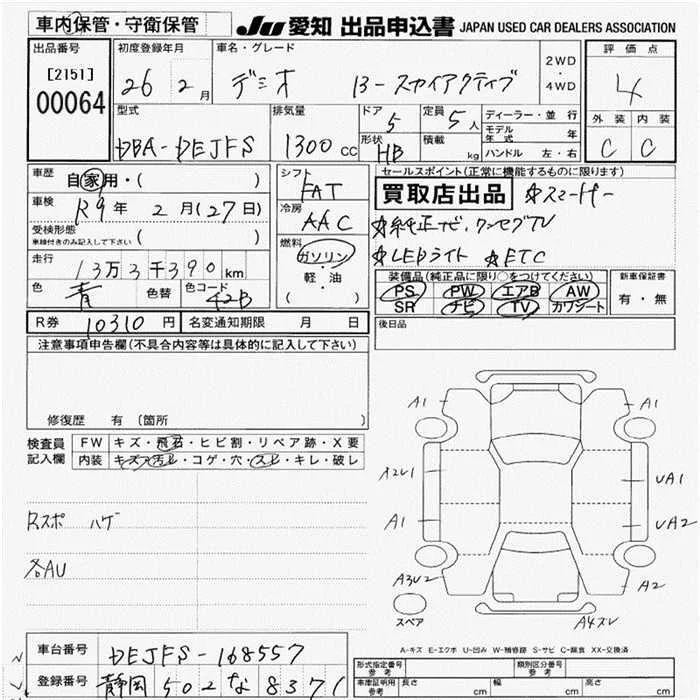 車内保管・守衛保管
JU 愛知 出品申込書 JAPAN USED CAR DEALERS ASSOCIATION
出品番号 初度登録年月 車名・グレード 2WD・4WD 評価点
[2151] 00064 26 2月 デミオ 13-スカイアクティブ 4
型式 排気量 ドア 5 定員 5人 ディーラー・並行 外装 内装
モデル年式 年
DBA-DEJFS 1300cc 形状 HB 積載 kg ハンドル 左・右 C C
車歴 自家用・( ) シフト FAT セールスポイント(正常に機能するものに限ります)
車検 R9年 2月(27日) 冷房 AAC 買取店出品 ☆スマートキー
受検形態 車検付きのみ記入して下さい ( ) 燃料 ガソリン・軽・油 ( ) ☆純正ナビ、ワンセグTV
走行 13万3千390km ☆LEDライト ☆ETC
色 青 色替 色コード 42B 装備品(純正品に限り○をつけてください) 新車保証書
PS PW エアB AW 有・無
SR ナビ TV カワシート
R券 10310円 名変通知期限 月 日 後日品
注意事項申告欄(不具合内容等は具体的に記入して下さい)
修復歴 有 〔箇所 〕
検査員記入欄 FW キズ・飛石・ヒビ割・リペア跡・X要
内装 キズ・汚レ・コゲ・穴・スレ・キレ・破レ
A1 A1
A2レ1 UA1
A1 UA2
A3U2 A2
スペア A4スレ
Rスポ ハゲ
各AU
A-キズ E-エクボ U-凹み W-補修跡 S-サビ C-腐食 XX-交換済
車台番号 DEJFS-168557 形式指定番号 参考 類別区分番号 参考
登録番号 静岡 502 な 8371 車庫証明用 参考 長さ cm 幅 cm 高さ cm